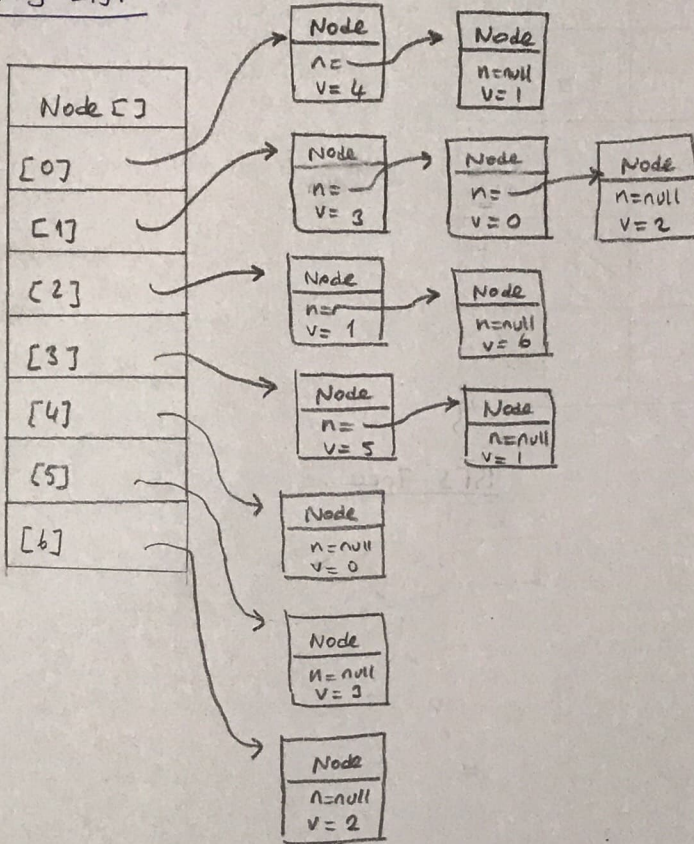 Node []
[0]
[1]
[2]
[3]
[4]
[5]
[6]
Node
n=
v= 4
Node
n=null
v= 1
Node
n=
v= 3
Node
n=
v=0
Node
n=null
v= 2
Node
n=
v= 1
Node
n=null
v= 6
Node
n=
v= 5
Node
n=null
v= 1
Node
n=null
v= 0
Node
n= null
v= 3
Node
n=null
v= 2